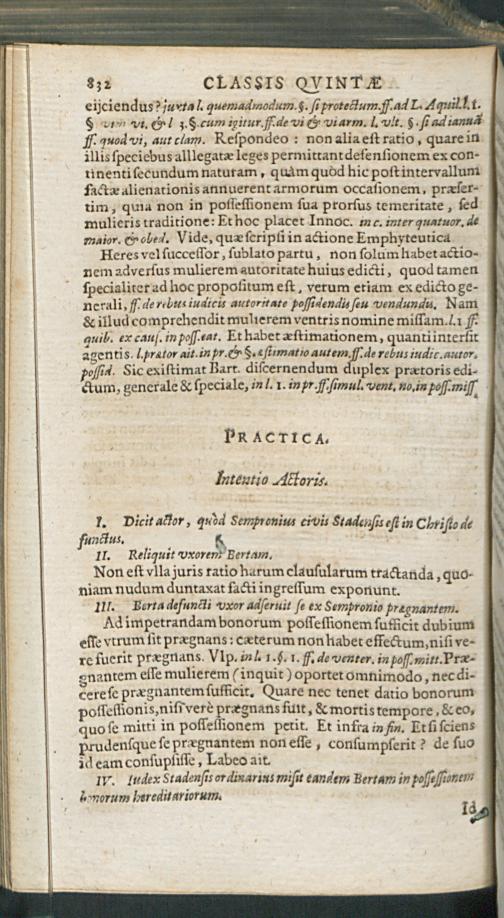 832 CLASSIS QVINTÆ
eijciendus? juxta l. quemadmodum. §. si protectum. ff. ad L. Aquil. l. 1.
§ vim vi. & l 3. §. cum igitur. ff. de vi & vi arm. l. vlt. §. si ad ianuã
ff. quod vi, aut clam. Respondeo: non alia est ratio, quare in
illis speciebus alllegatæ leges permittant defensionem ex con-
tinenti secundum naturam, quàm quòd hic post intervallum
factæ alienationis annuerent armorum occasionem, præser-
tim, quia non in possessionem sua prorsus temeritate, sed
mulieris traditione: Et hoc placet Innoc. in c. inter quatuor. de
maior. & obed. Vide, quæ scripsi in actione Emphyteutica
Heres vel successor, sublato partu, non solum habet actio-
nem adversus mulierem autoritate huius edicti, quod tamen
specialiter ad hoc propositum est, verum etiam ex edicto ge-
nerali, ff. de rebus iudicis autoritate possidendis seu vendundis. Nam
& illud comprehendit mulierem ventris nomine missam. l. 1 ff.
quib. ex caus. in poss. eat. Et habet æstimationem, quanti intersit
agentis. l. prætor ait. in pr. & §. æstimatio autem. ff. de rebus iudic. autor.
possid. Sic existimat Bart. discernendum duplex prætoris edi-
ctum, generale & speciale, in l. 1. in pr. ff. simul. vent. no. in poss. miss.
PRACTICA.
Intentio Actoris.
I. Dicit actor, quòd Sempronius civis Stadensis est in Christo de
functus.
II. Reliquit vxorem Bertam.
Non est vlla juris ratio harum clausularum tractanda, quo-
niam nudum duntaxat facti ingressum exponunt.
III. Berta defuncti vxor adseruit se ex Sempronio prægnantem.
Ad impetrandam bonorum possessionem sufficit dubium
esse vtrum sit prægnans: cæterum non habet effectum, nisi ve-
re fuerit prægnans. Vlp. in l. 1. §. 1. ff. de venter. in poss. mitt. Præ-
gnantem esse mulierem (inquit) oportet omnimodo, nec di-
cere se prægnantem sufficit. Quare nec tenet datio bonorum
possessionis, nisi verè prægnans fuit, & mortis tempore, & eo,
quo se mitti in possessionem petit. Et infra in fin. Et si sciens
prudensque se prægnantem non esse, consumpserit? de suo
id eam consupsisse, Labeo ait.
IV. Iudex Stadensis ordinarius misit eandem Bertam in possessionem
bonorum hereditariorum.
Id